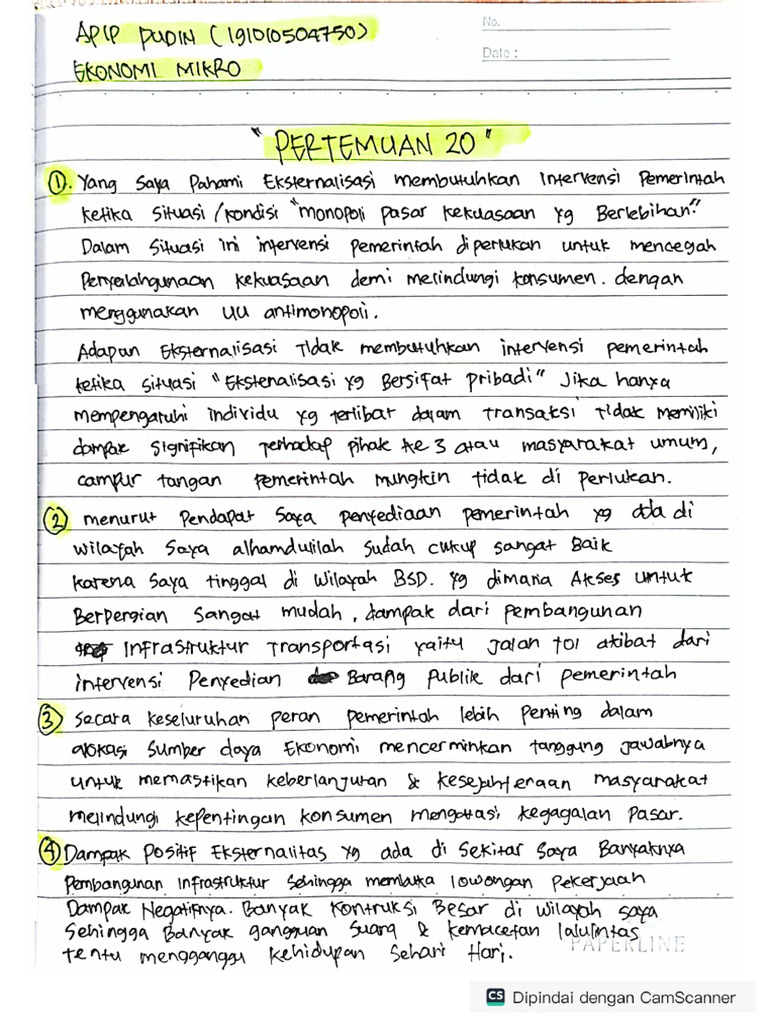 APIP PUDIN (191010504750)
No.
EKONOMI MIKRO
Date :
"PERTEMUAN 20"
1. Yang Saya Pahami Eksternalisasi membutuhkan Intervensi Pemerintah
ketika Situasi/kondisi "monopoli pasar kekuasaan yg Berlebihan".
Dalam Situasi ini intervensi pemerintah diperlukan untuk mencegah
Penyalahgunaan kekuasaan demi melindungi konsumen. dengan
menggunakan UU antimonopoli.
Adapun Eksternalisasi Tidak membutuhkan intervensi pemerintah
ketika situasi "Ekstenalisasi yg Bersifat pribadi" Jika hanya
mempengaruhi individu yg terlibat dalam transaksi Tidak Memiliki
dampak signifikan Terhadap pihak ke 3 atau masyarakat umum,
campur tangan Pemerintah Mungkin tidak di perlukan.
2 menurut Pendapat Saya penyediaan pemerintah yg ada di
wilayah Saya alhamdulilah sudah cukup sangat Baik
karena Saya tinggal di wilayah BSD. yg dimana Akses untuk
Berpergian Sangat mudah, dampak dari pembangunan
Infrastruktur Transportasi yaitu jalan tol akibat dari
intervensi Penyedian Barang Publik dari pemerintah
3 Secara keseluruhan peran pemerintah lebih penting dalam
alokasi Sumber daya Ekonomi mencerminkan tanggung jawabnya
untuk memastikan keberlanjutan & kesejahteraan masyarakat
melindungi kepentingan konsumen mengatasi kegagalan Pasar.
4 Dampak Positif Eksternalitas yg ada di Sekitar Saya Banyaknya
Pembangunan Infrastruktur Sehingga membuka lowongan Pekerjaan
Dampak Negatifnya. Banyak Kontruksi Besar di wilayah saya
Sehingga Banyak gangguan Suara & kemacetan lalulintas
tentu mengganggu kehidupan Sehari Hari.
PAPERLINE
CS Dipindai dengan CamScanner